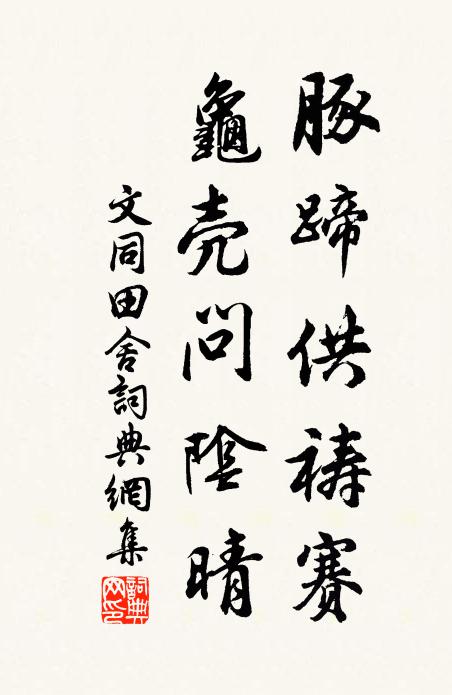 豚蹄供祷赛
龜壳問陰晴
文同田舍詞典網集
詞典網印